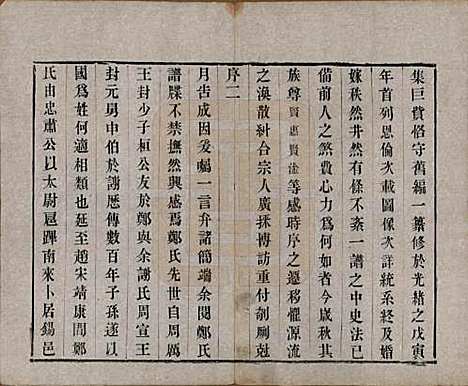 集巨貲俗守舊編一纂修於光緒之戊寅
年首列恩倫次載圖像次詳統系終及婚
嫁秩然井然有條不紊一譜之中史法已
備前人之煞費心力爲何如者今歲秋其
族尊賢惠賢途等感時序之遷移懼源流
之渙散糾台宗人廣採博訪重付剞劂尅
序二
月告成因爰囑一言弁諸簡端余閱鄭氏
譜牒不禁撫然興感焉鄭氏先世自周厲
王封少子桓公友於鄭與余謝氏周宣王
封元舅申伯於謝歷傳數百年子孫遂以
國爲姓何適相類也延至趙宋靖康間鄭
氏由忠肅公以太尉扈蹕南來卜居錫邑